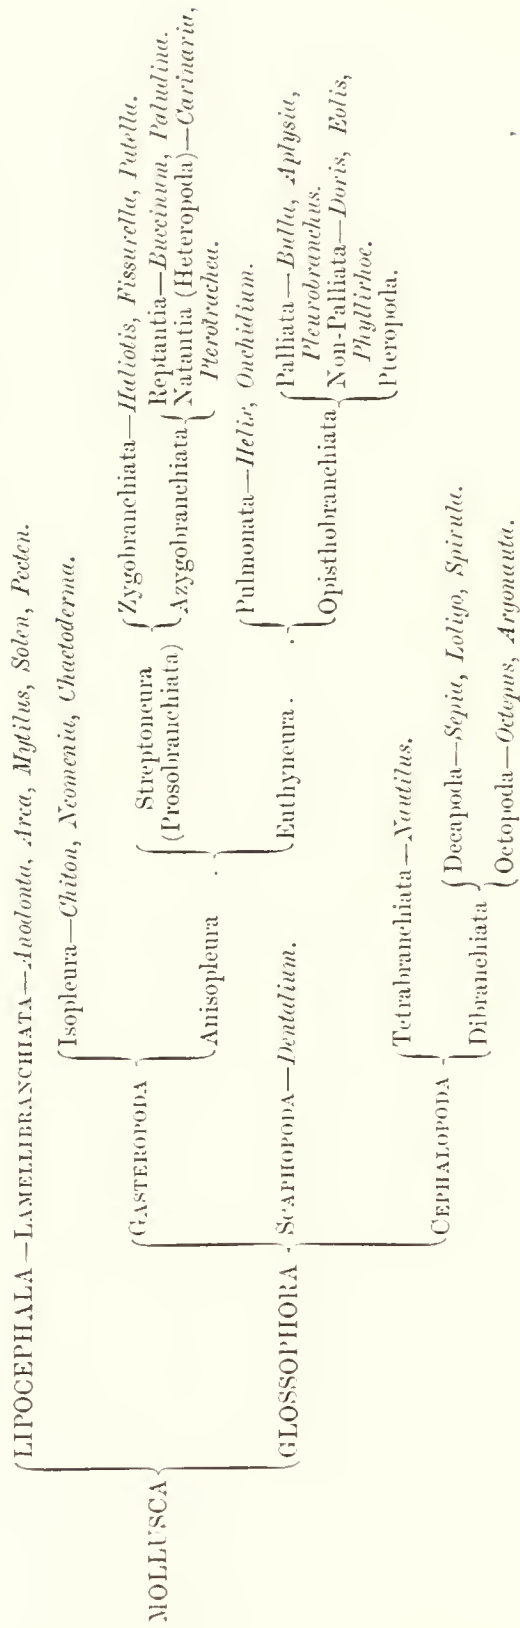 MOLLUSCA
LIPOCEPHALA—LAMELLIBRANCHIATA—Anodonta, Arca, Mytilus, Solen, Pecten.
GLOSSOPHORA
GASTEROPODA
Isopleura—Chiton, Neomenia, Chaetoderma.
Anisopleura
Streptoneura
(Prosobranchiata)
Zygobranchiata—Haliotis, Fissurella, Patella.
Azygobranchiata
Reptantia—Buccinum, Paludina.
Natantia (Heteropoda)—Carinaria,
Pterotrachea.
Euthyneura.
Pulmonata—Helix, Onchidium.
Opisthobranchiata
Palliata—Bulla, Aplysia,
Pleurobranchus.
Non-Palliata—Doris, Eolis,
Phyllirhoe.
Pteropoda.
SCAPHOPODA—Dentalium.
CEPHALOPODA
Tetrabranchiata—Nautilus.
Dibranchiata
Decapoda—Sepia, Loligo, Spirula.
Octopoda—Octopus, Argonauta.